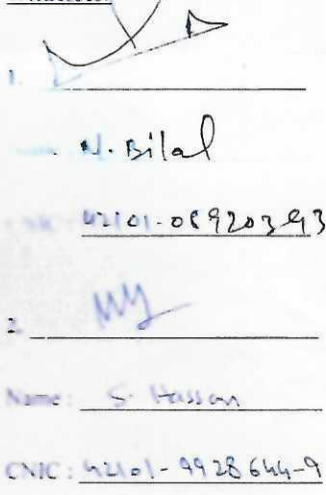 Witnesses:
1.
N. Bilal
42101-0892039-3
2.
Name: S. Hassan
CNIC: 42101-9928644-9